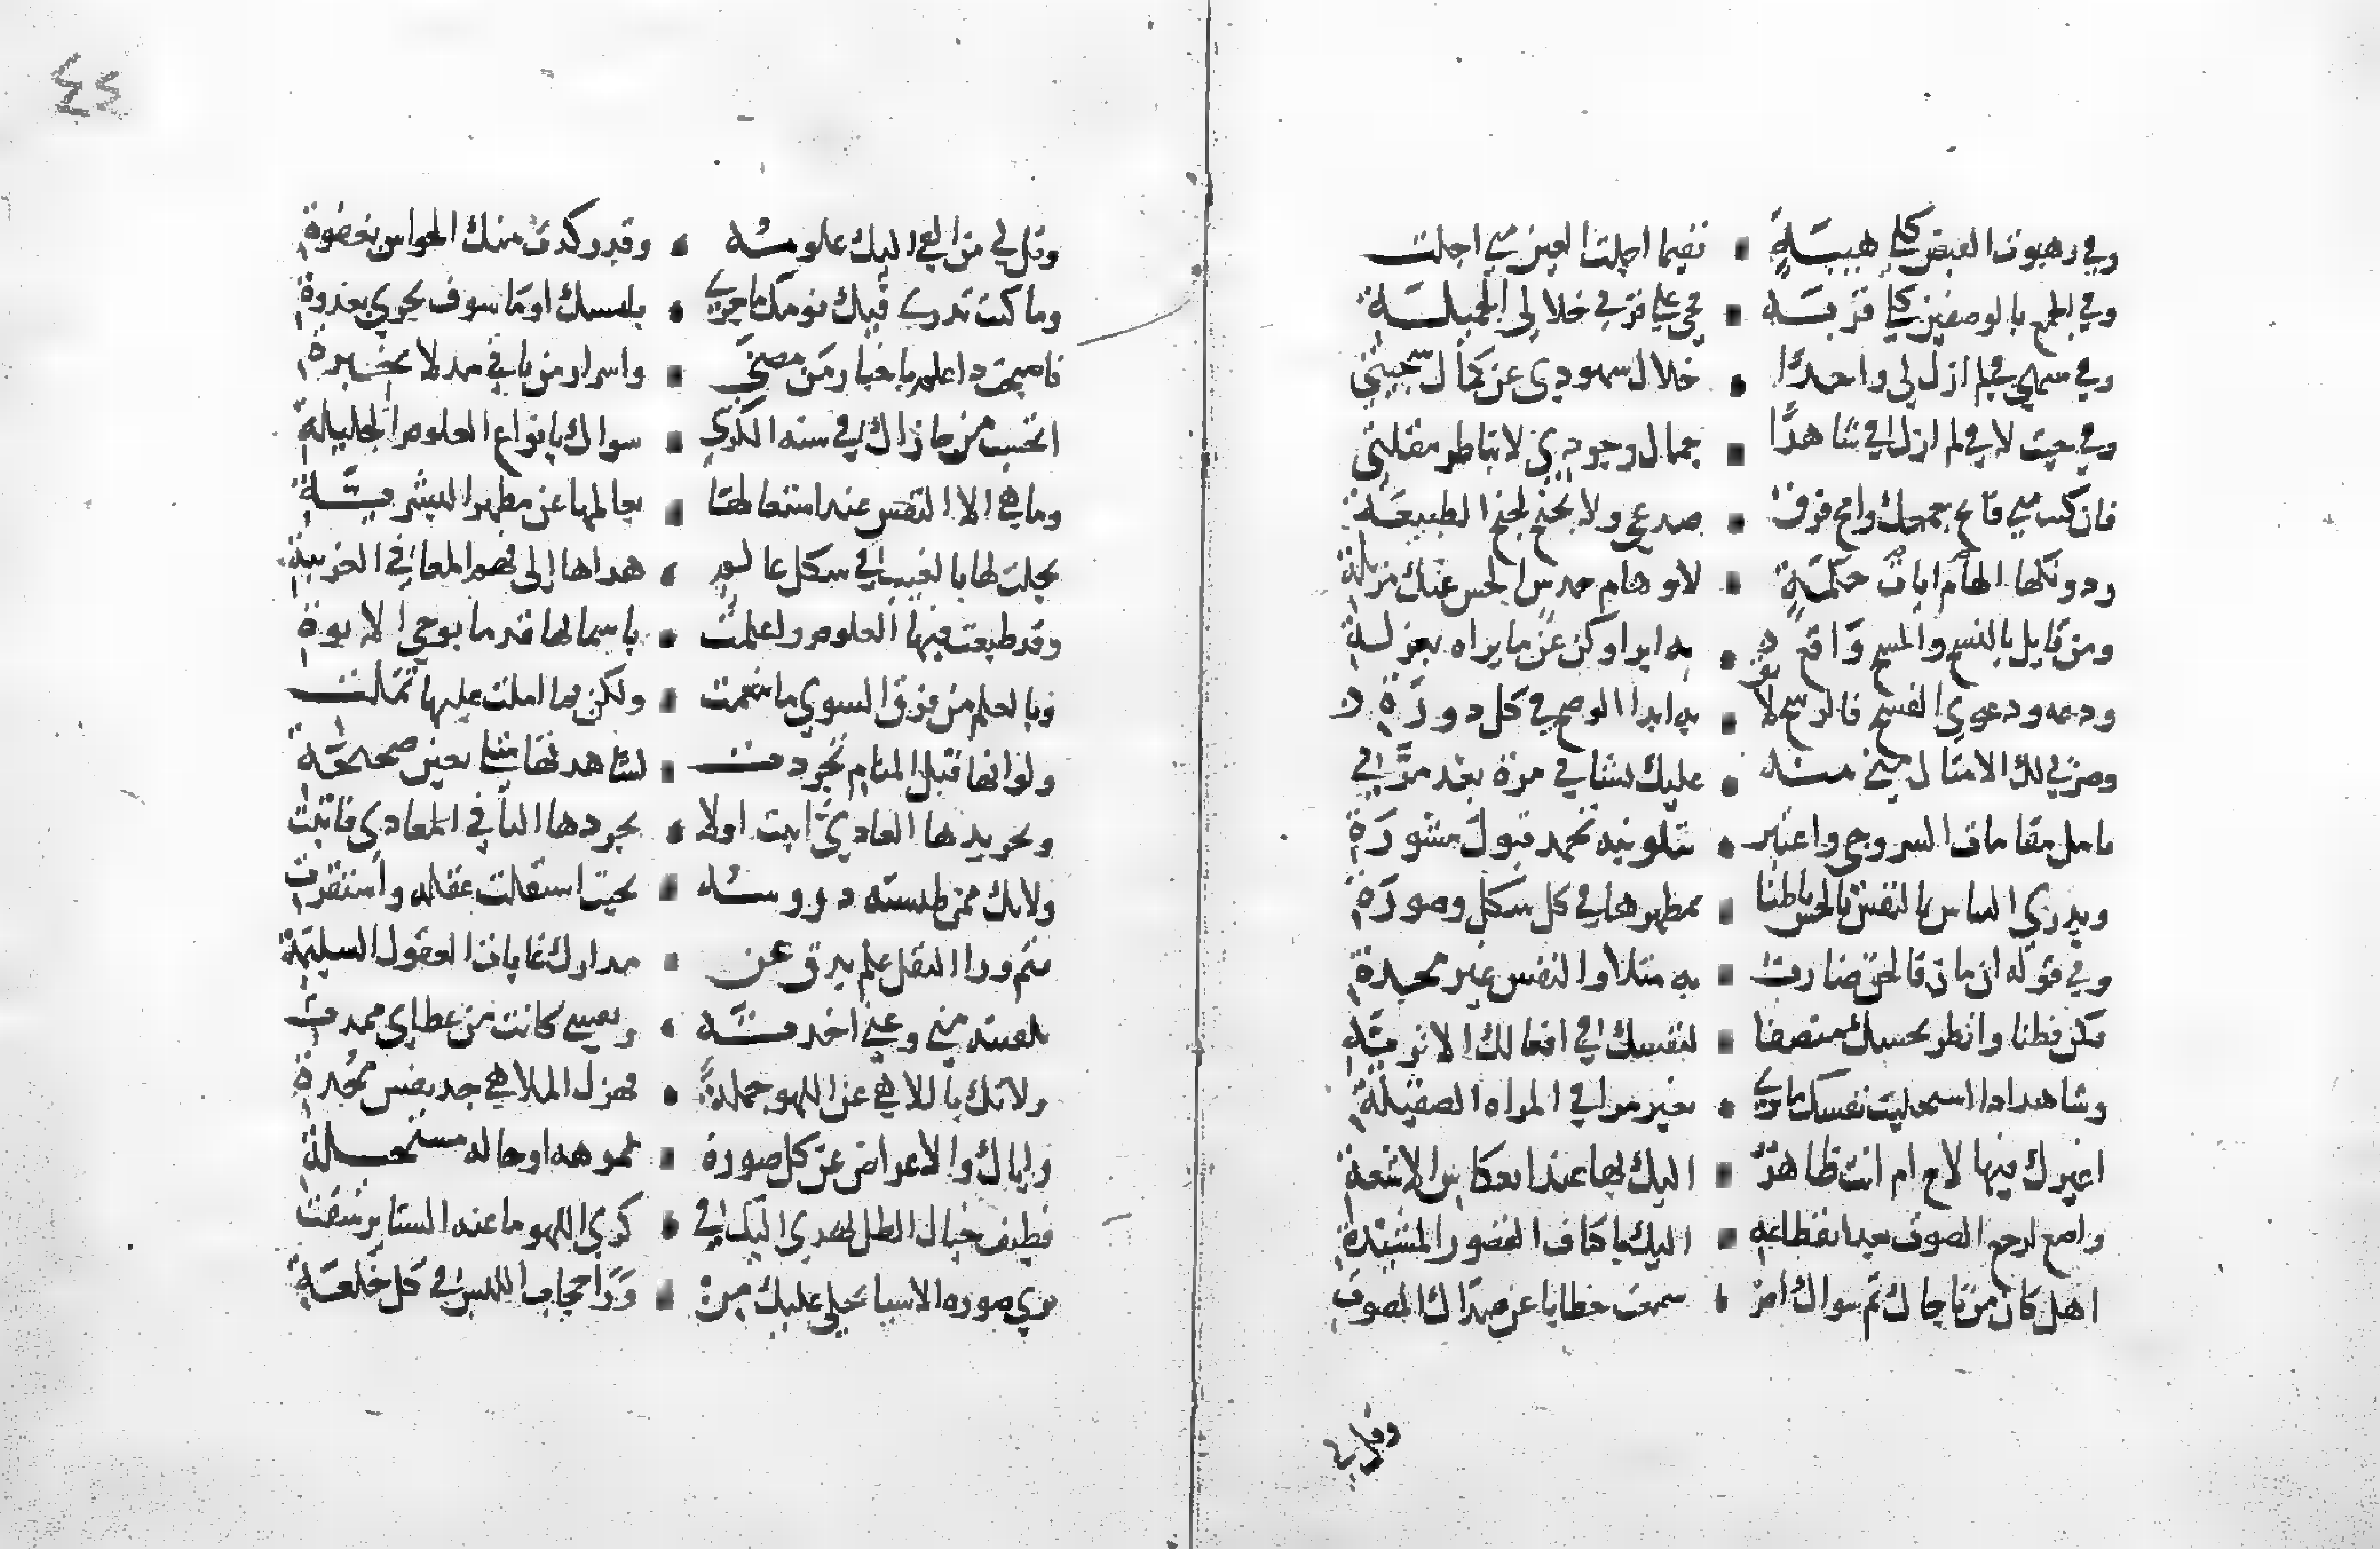 وفي رهبوت القبض كلي هيبة ▪ ففيما اجلت العين مني اجلت
وفي الجمع بالوصفين كلي قربة ▪ فحي على قربي خلالي الجميلة
وفي منتهى في لم ازل لي واجدا ▪ خلال شهودي عن كمال سجيتي
وفي حيث لا في لم ازل في شاهدا ▪ جمال وجودي لا بناظر مقلتي
فان كنت مني فانح جمعك وامح فرق ▪ صدعي ولا تجنح لجنح الطبيعة
ودونكها الهام ايات حكمة ▪ لاوهام حدس الحس عنك مزيلة
ومن قايل بالنسخ والمسخ واقع ▪ به ابرا وكن عن ما يراه بعزلة
ودعه ودعوى الفسخ فالرسخ لايق ▪ به ابدا لو صح في كل دورة
وضربي لك الامثال مني منة ▪ عليك بشاني مرة بعد مرة
تامل مقامات السروجي واعتبر ▪ بتلوينه تحمد قبول مشورة
وتدري التباس النفس بالحس باطنا ▪ بمظهرها في كل شكل وصورة
وفي قوله ان مان فالحق ضارب ▪ به مثلا والنفس غير مجدة
فكن فطنا وانظر بحسك منصفا ▪ لنفسك في افعالك الاثرية
وشاهد اذا استجليت نفسك ما ترى ▪ بغير مرا في المراه الصقيلة
اغيرك فيها لاح ام انت ظاهر ▪ اليك بها عند انعكاس الاشعة
واصغ لرجع الصوت عند انقطاعه ▪ اليك باكناف القصور المشيدة
اهل كان من ناجاك ثم سواك ام ▪ سمعت خطابا عن صداك المصوت
وقل لي
٤٤
وقل لي من القى اليك علومه ▪ وقد ركدت منك الحواس بغفوة
وما كنت تدري قبل يومك ما جرى ▪ بامسك او ما سوف يجري بغدوة
فاصبحت ذا علم باخبار من مضى ▪ واسرار من ياتي مدلا بخبرة
اتحسب من جاراك في سنة الكرى ▪ سواك بانواع العلوم الجليلة
وما هي الا النفس عند اشتغالها ▪ بعالمها عن مظهر البشرية
تجلت لها بالغيب في شكل عالم ▪ هداها الى فهم المعاني الغريبة
وقد طبعت فيها العلوم واعلمت ▪ باسمائها قدما بوحي الابوة
وبالعلم من فوق السوى ما تنعمت ▪ ولكن بما املت عليها تملت
ولو انها قبل المنام تجردت ▪ لشاهدتها مثلي بعين صحيحة
وتجريدها العادي اثبت اولا ▪ تجردها الثاني المعادي فاثبت
ولا تك ممن طيشته دروسه ▪ بحيث استقلت عقله واستقرت
فثم ورا النقل علم يدق عن ▪ مدارك غايات العقول السليمة
تلقيته مني وعني اخذته ▪ ونفسي كانت من عطاي ممدتي
ولا تك باللاهي عن اللهو جملة ▪ فهزل الملاهي جد نفس مجدة
واياك والاعراض عن كل صورة ▪ مموهة او حاله مستحيلة
فطيف خيال الظل يهدي اليك في ▪ كرى اللهو ما عنه الستاير شقت
ترى صورة الاشيا تجلى عليك من ▪ ورا حجاب اللبس في كل خلعة